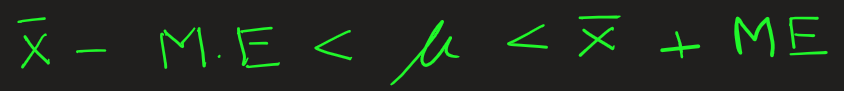 x̄ - M.E < μ < x̄ + ME